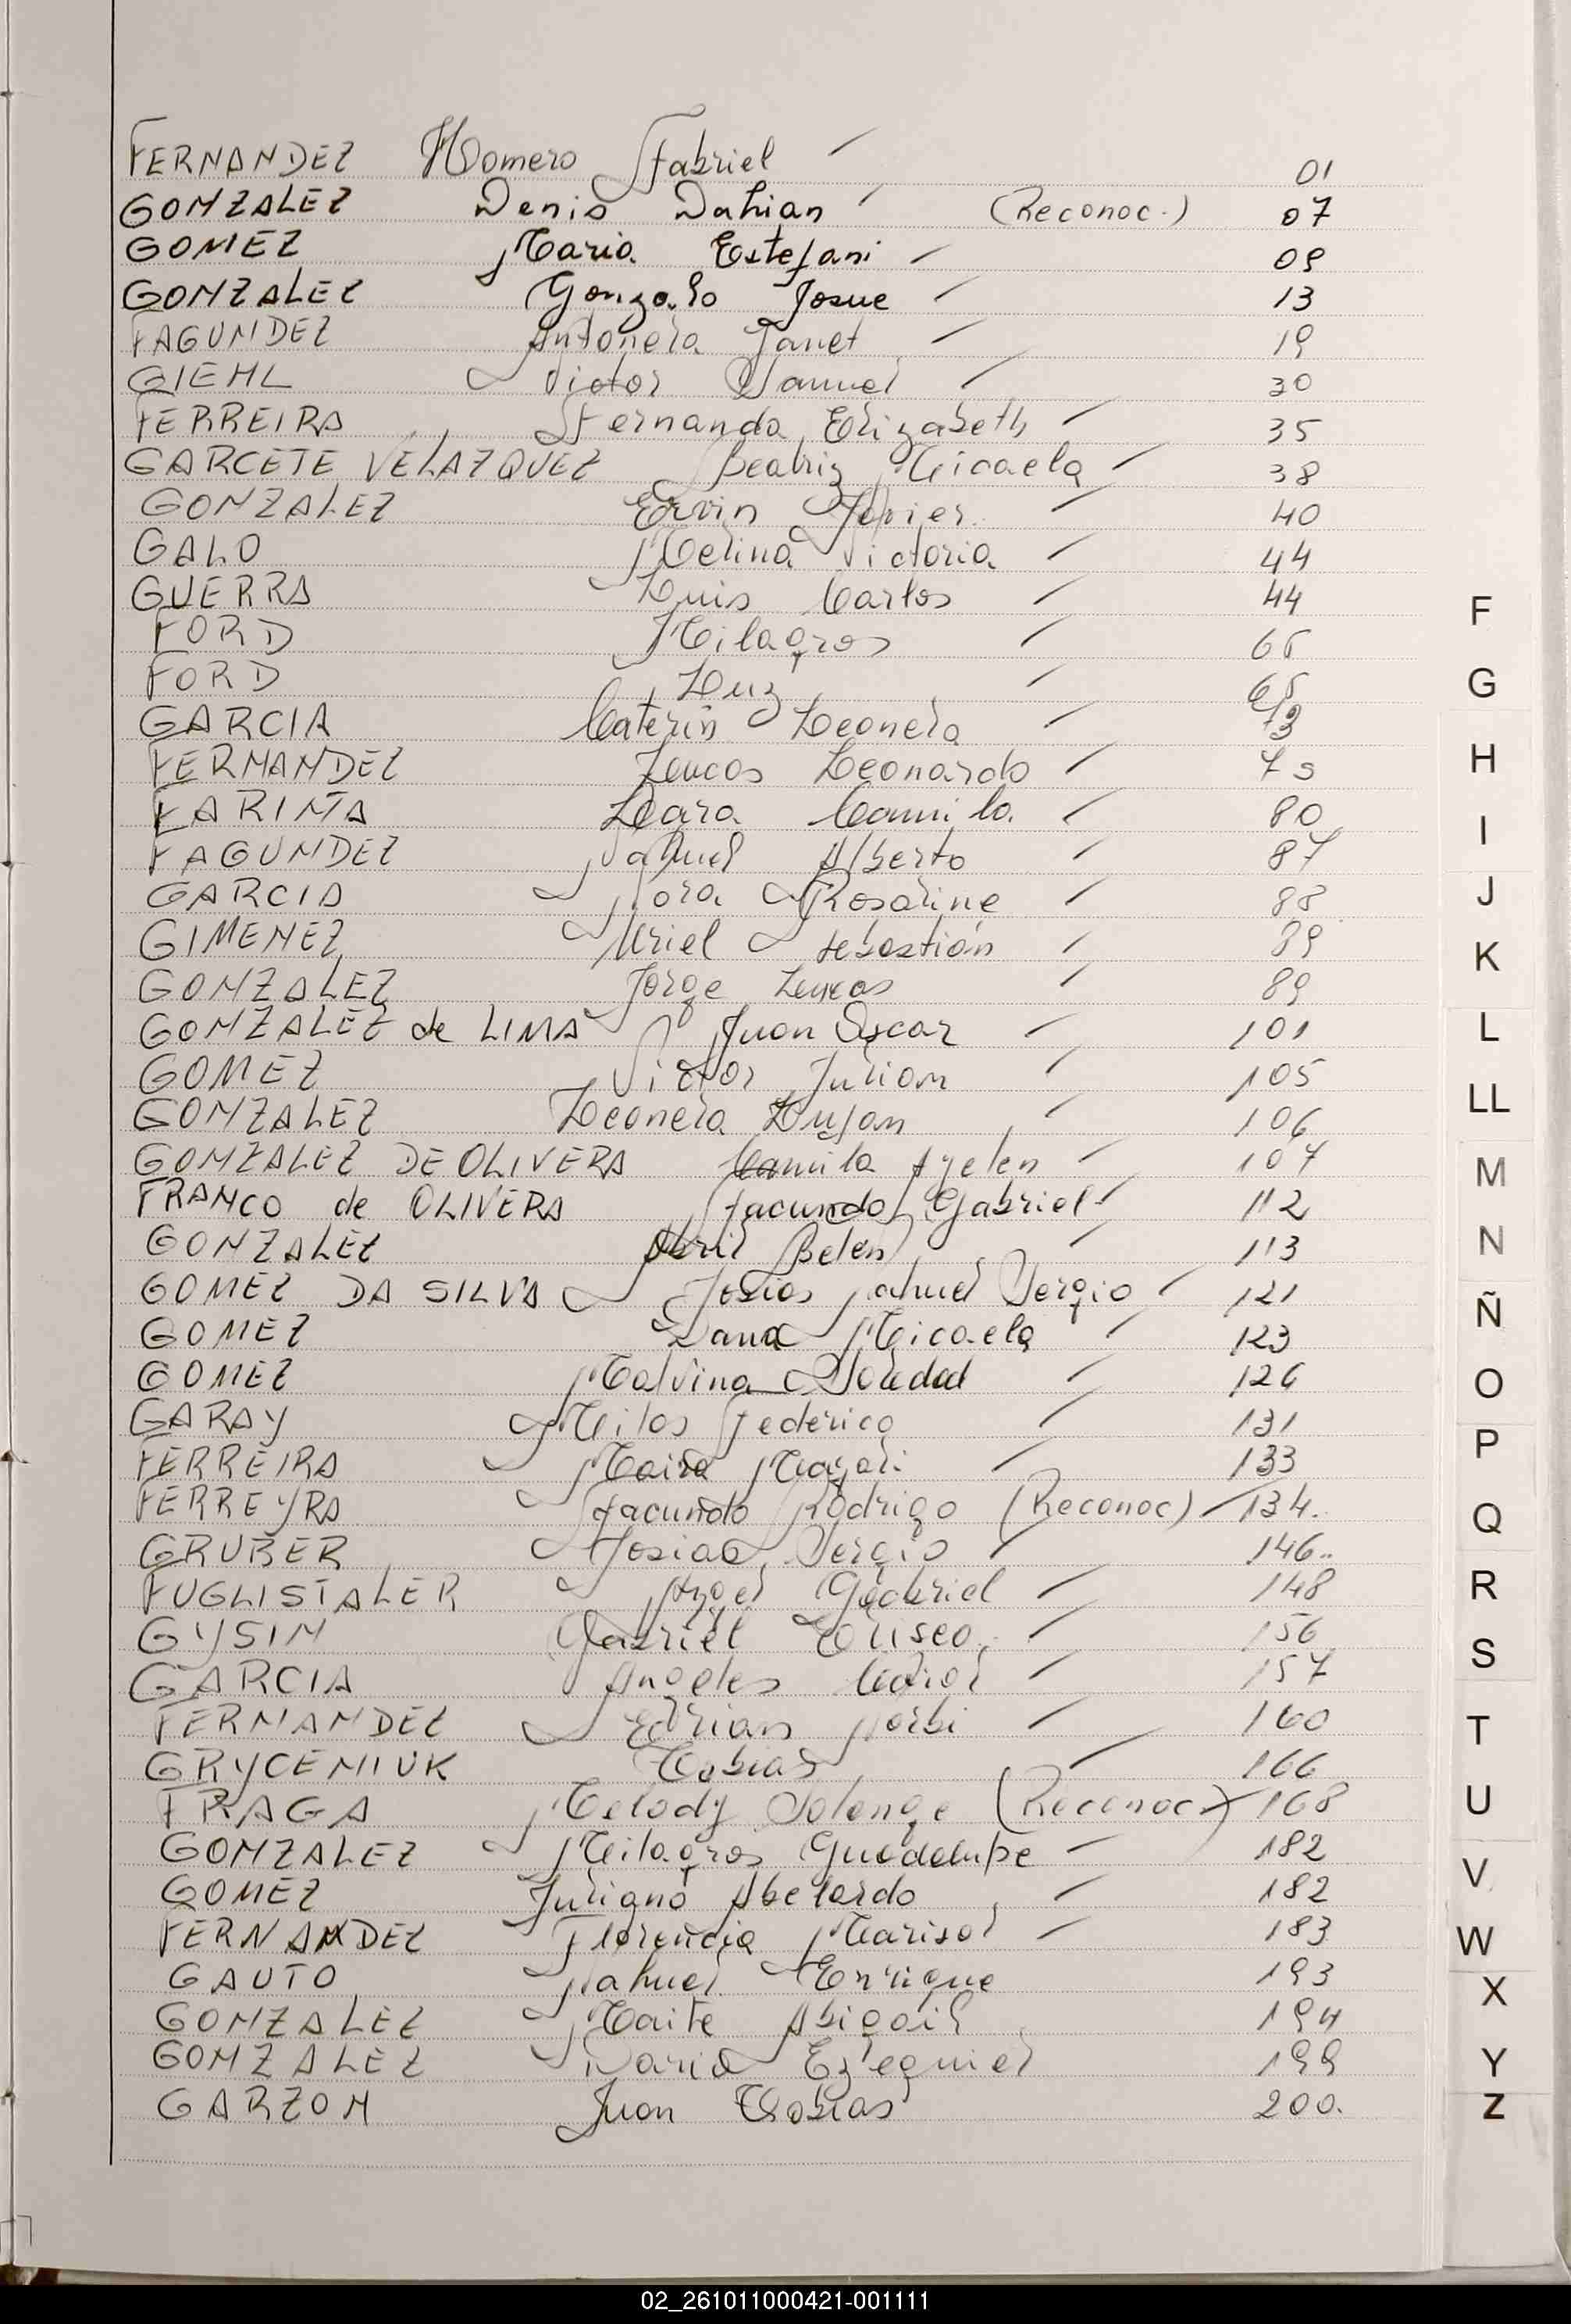 FERNANDEZ Homero Fabriel 01
GONZALEZ Denis Dahian (Reconoc.) 07
GOMEZ Maria Estefani 09
GONZALEZ Gonzalo Josue 13
FAGUNDEZ Antonela Janet 19
GIEHL Victor Samuel 30
FERREIRA Fernanda Elizabeth 35
GARCETE VELAZQUEZ Beatriz Micaela 38
GONZALEZ Ervin Javier 40
GALO Melina Victoria 44
GUERRA Luis Carlos 44
FORD Milagros 65
FORD Luz 65
GARCIA Caterin Leonela 73
FERNANDEZ Lucas Leonardo 75
FARIÑA Lara Camila 80
FAGUNDEZ Nahuel Alberto 87
GARCIA Nora Rosaline 88
GIMENEZ Uriel Sebastián 89
GONZALEZ Jorge Lucas 89
GONZALEZ de LIMA Juan Oscar 101
GOMEZ Victor Julian 105
GONZALEZ Leonela Lujan 106
GONZALEZ DE OLIVERA Camila Ayelen 107
FRANCO de OLIVERA Facundo Gabriel 112
GONZALEZ Abril Belen 113
GOMEZ DA SILVA Josias Nahuel Sergio 121
GOMEZ Dana Micaela 123
GOMEZ Malvina Soledad 126
GARAY Milos Federico 131
FERREIRA Maira Magali 133
FERREYRA Facundo Rodrigo (Reconoc) 134.
GRUBER Josias Sergio 146..
FUGLISTALER Angel Gabriel 148
GYSIN Gabriel Eliseo 156
GARCIA Angeles 157
FERNANDEZ Adrian Norbi 160
GRYCENIUK Tobias 166
FRAGA Melody Solange (Reconoc.) 168
GONZALEZ Milagros Guadalupe 182
GOMEZ Juliano Abelardo 182
FERNANDEZ Florencia Marisol 183
GAUTO Nahuel Enrique 193
GONZALEZ Maite Abigail 194
GONZALEZ Dario Ezequiel 199
GARZON Juan Tobias 200.
F
G
H
I
J
K
L
LL
M
N
Ñ
O
P
Q
R
S
T
U
V
W
X
Y
Z
02_261011000421-001111